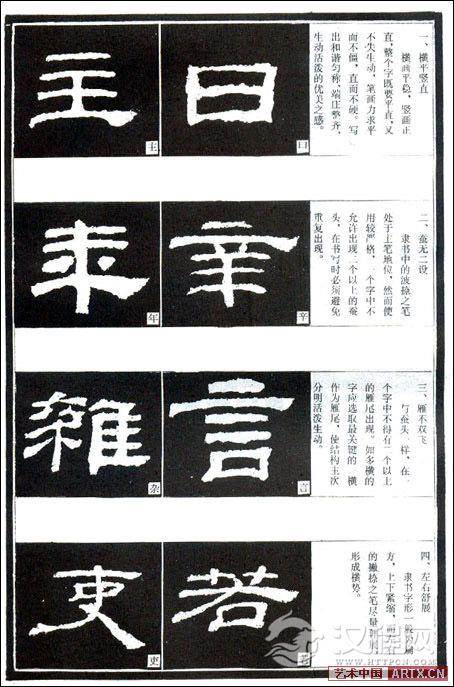 一、横平竖直
横画平稳，竖画正
直，整个字既要平直，又
不失生动，笔画力求平
而不僵，直而不硬。写
出和谐匀称、端庄整齐，
生动活泼的优美之感。
曰
曰
主
主
二、蚕无二设
隶书中的波捺之笔
处于主笔地位，然而使
用较严格，一个字中不
允许出现二个以上的蚕
头，在书写时必须避免
重复出现。
辛
辛
年
年
三、雁不双飞
与蚕头一样，在一
个字中不得有二个以上
的雁尾出现。如多横的
字应选取最关键的一横
作为雁尾，使结构主次
分明活泼生动。
言
言
雜
杂
四、左右舒展
隶书字形一般为扁
方，上下紧缩，而左右
的撇捺之笔尽量
形成横势。
若
若
吏
吏
汉程网
艺术中国 ARTX.CN